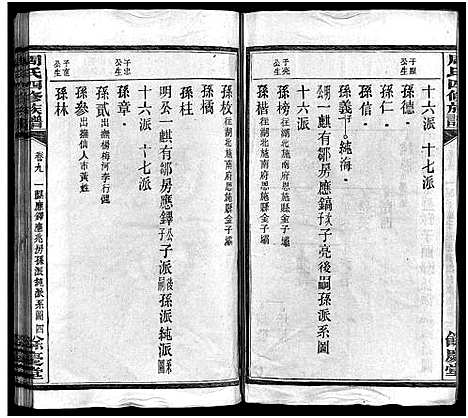 周氏四修族譜
十六派 十七派
子仁公生
孫德
孫仁
孫信
孫義 純海
明公一麒有鄒房應鎬子亮後嗣孫派系圖
十六派
子亮公生
孫榜 往湖北施南府恩施縣金子壩
孫楷 往湖北施南府恩施縣金子壩
孫枚 往湖北施南府恩施縣金子壩
孫橘
孫柱
明公一麒有鄒房應鐸公子派後嗣孫派純派系
十六派 十七派
子忠公生
孫章
孫貳 出撫楊梅河李行偑
孫參 出撫仙人市黃姓
子寬公生
孫林
周氏四修族譜
卷九 一麒應鐸應兆房孫派純派系圖 四
餘慶堂
餘慶堂